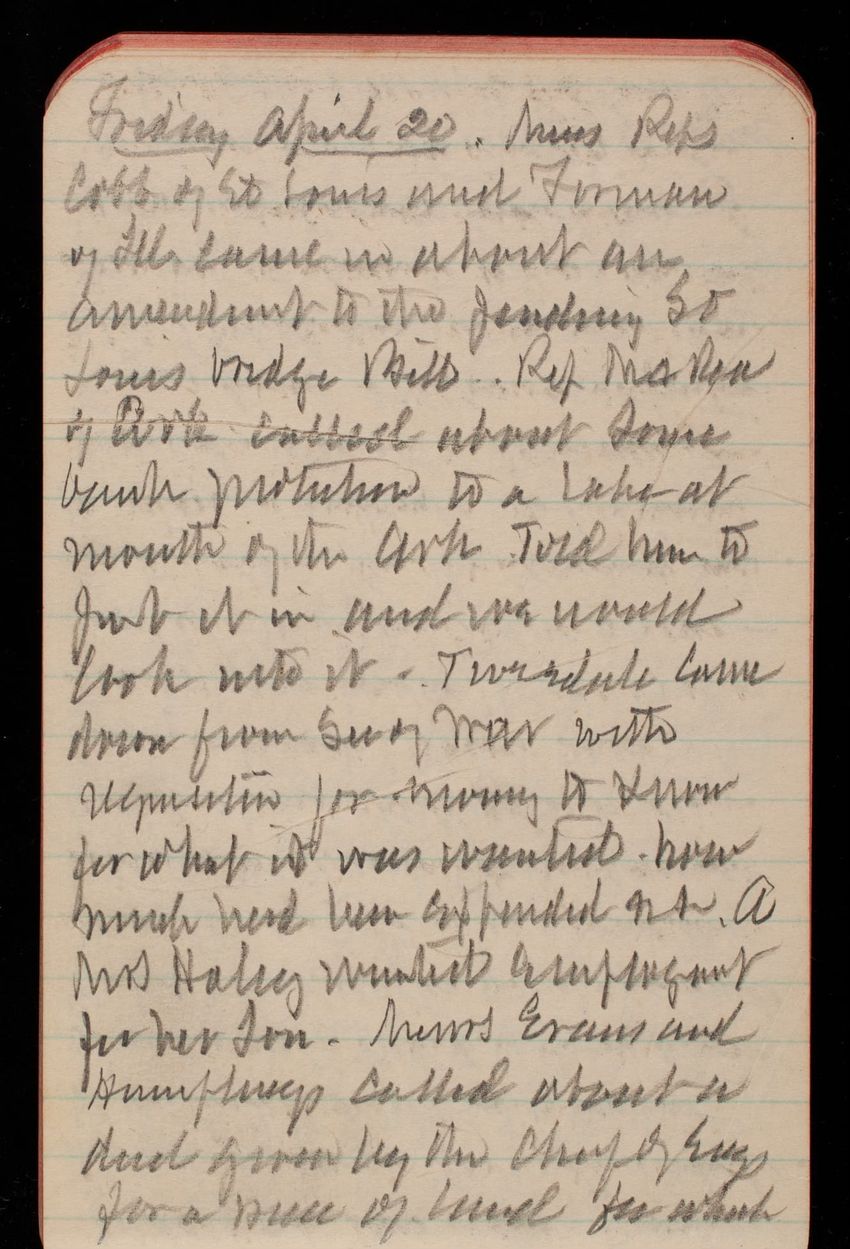 Friday April 20. Messrs Reps
Cobb of St Louis and Forman
of Ill. came in about an
amendment to the pending St
Louis bridge Bill. Rep McRea
of Ark called about some
bank protection to a lake at
mouth of the Ark Told him to
put it in and we would
look into it. Tweedale came
down from Sec of War with
requisition for money to know
for what it was wanted. how
much had been expended etc. A
Mrs Halsey wanted employment
for her son. Messrs Evans and
Humphreys called about a
deed given by the Chief of Engs
for a piece of land for which